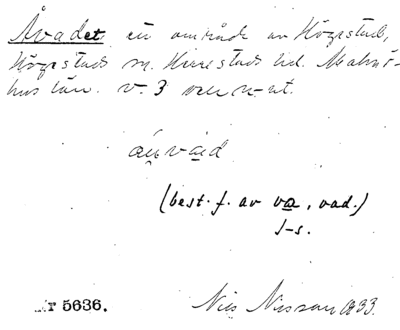 Åvadet en område av Högestad,
Högestads sn. Herrestads hd. Malmö-
hus län. v. 3
(best. f. av va, vad.)
J-s.
r 5636. Nils Nilsson 1933.